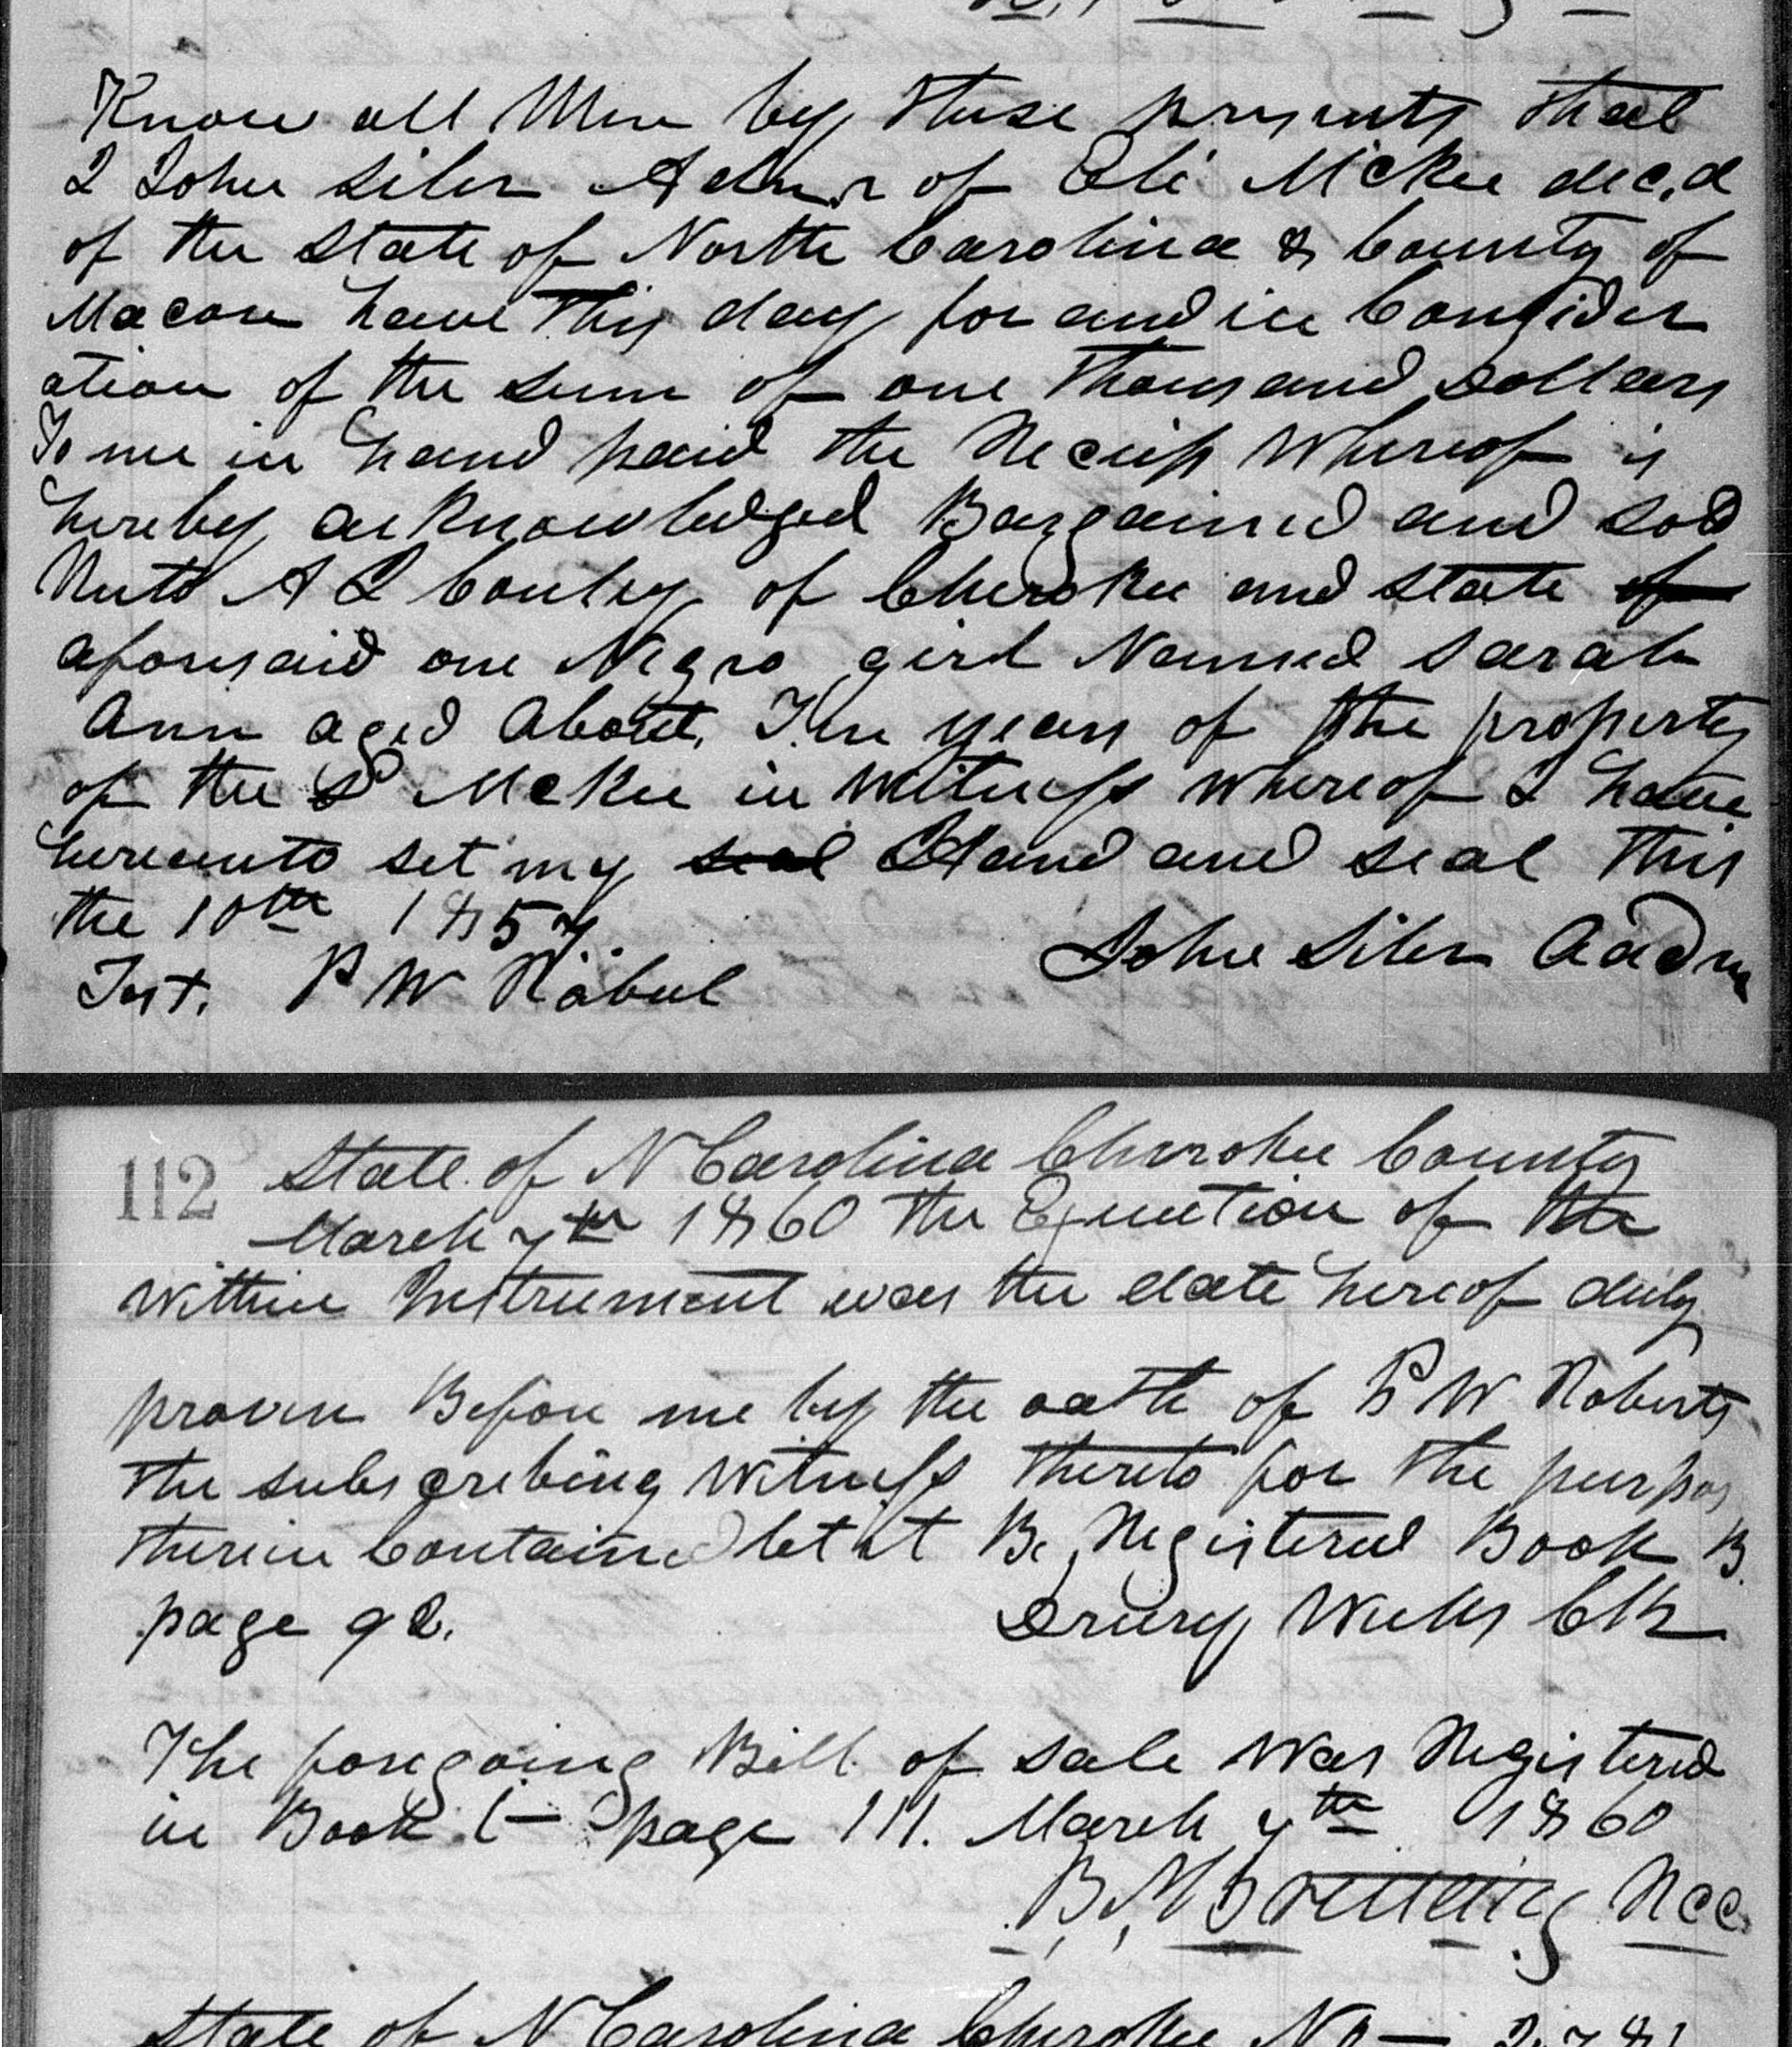 Know all Men by these presents that
I John Siler Adm.r of Eli McKee dec,d
of the State of North Carolina & County of
Macon have this day for and in Consider
ation of the sum of one Thousand Dollars
To me in hand paid the Receip Whereof is
hereby acknowledged Bargained and sod
Unto A L Conley of Cherokee and State of
aforesaid one Negro girl Named Sarah
Ann aged About. Ten years of the property
of the S McKee in Witness whereof I have
hereunto set my seal Hand and seal This
the 10th 1857.
Test. P W Rabul
John Siler Aadm
112 State of N Carolina Cherokee County
March 7th 1860 the Execution of the
within Instrument was the date hereof duly
proven Before me by the oath of P W Roberts
the subscribing Witness thereto for the purpos
therein Contained let it Be Registered Book B.
page 92.
Drury Weeks Clk
The foregoing Bill of sale Was Registered
in Book page 111. March 7th 1860
State of N Carolina Cherokee No